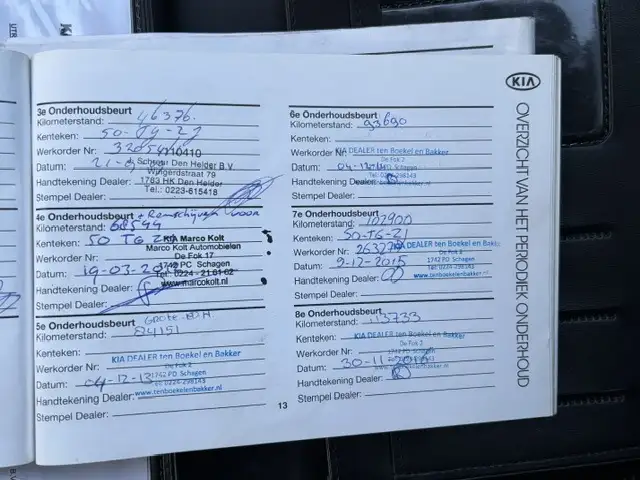 KIA
OVERZICHT VAN HET PERIODIEK ONDERHOUD
3e Onderhoudsbeurt
Kilometerstand: 46376.
Kenteken:
Werkorder Nr:
Datum:
Schreur Den Helder B.V.
1783 HK Den Helder
Handtekening Dealer:
Tel.: 0223-615418
4e Onderhoudsbeurt
Kilometerstand:
Kenteken: 50 TG
KIA Marco Kolt
Werkorder Nr:
Marco Kolt Automobielen
De Fok 17
Datum: 19-03-
1742 PC Schagen
Handtekening Dealer:
www.marcokolt.nl
Stempel Dealer:
5e Onderhoudsbeurt
Kilometerstand: 84151
Kenteken:
KIA DEALER ten Boekel en Bakker
Werkorder Nr:
De Fok 2
Datum: 04-12-13
1742 PD Schagen
Tel. 0224-298143
Handtekening Dealer:
www.tenboekelenbakker.nl
Stempel Dealer:
6e Onderhoudsbeurt
Kilometerstand: 93690
Kenteken:
Werkorder Nr:
KIA DEALER ten Boekel en Bakker
De Fok 2
Datum:
Handtekening Dealer:
Stempel Dealer:
7e Onderhoudsbeurt
Kilometerstand: 102900
Kenteken: 50-TG-21
Werkorder Nr:
KIA DEALER ten Boekel en Bakker
De Fok 2
Datum: 9-12-2015
1742 PD Schagen
Tel. 0224-298143
Handtekening Dealer:
www.tenboekelenbakker.nl
Stempel Dealer:
8e Onderhoudsbeurt
Kilometerstand: 113733
Kenteken:
KIA DEALER ten Boekel en Bakker
Werkorder Nr:
De Fok 2
Datum: 30-11-2016
Handtekening Dealer:
Stempel Dealer:
13